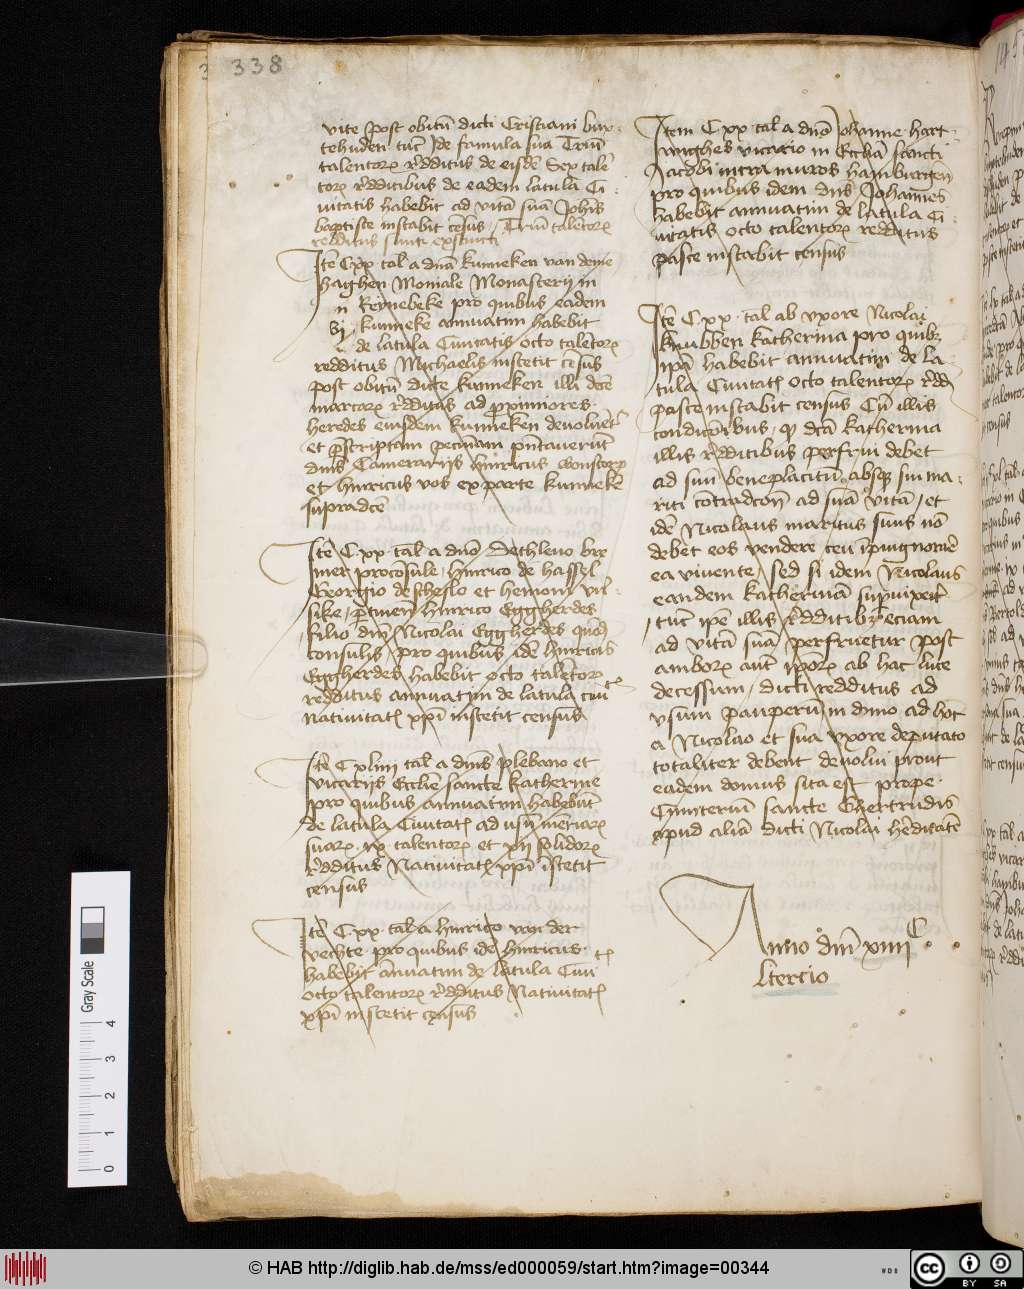 338
vite post obitū dicti Cristiani bux-
tehuden tūc Ide famula sua Triū
talentoꝝ rͤdditus de eisdē Sex talē
toꝝ rͤdditibus de eadem latula Ci-
uitatis habebit ad vitā suā Johīs
baptiste instabit cēsus / Triū talētoꝝ
redditus sunt extincti
Itē Cxx tal a dnā kunneken van deme
haghen Moniale Monasterij in
Reynebeke pro quibus eadem
kunneke annuatim habebit
de latula Ciuitatis octo talētoꝝ
redditus Michaelis instetit cēsus
post obitū dicte kunneken illi octē
marcoꝝ rͤdditus ad ꝓpinniores
heredes eiusdem kunneken deuoluēt
et p̄scriptam pecuniam p̄ntauerūt
dnis Camerarijs hinricus
et hinricus vos ex parte kunnekē
supradcē
Itē Cxx tal a dnō Dethleuo bre
mer proconsule, hinrico de hassel
Georgio de
hinrico Eggherdes
filio dnī Nicolai Eggherdes quōdā
consulis, pro quibus idē hinricus
Eggherdes habebit octo talētoꝝ
redditus annuatim de latula ciuitꝭ
Natiuitatꝭ xp̄i instetit census
Itē Cxliiij tal a dnis plebano et
vicarijs Ecclīe sancte katherine
pro quibus annuatim habebūt
de latula Ciuitatꝭ ad usū meoriaꝝ
suaꝝ ix talentoꝝ et xij solidoꝝ
rͤdditus Natiuitatꝭ xp̄i īstetit
census
Itē Cxx tal a hinrico van der
vechte pro quibus idē hinricus
habebit annuatim de latula Ciuitꝭ
octo talentoꝝ rͤdditus Natiuitatꝭ
xp̄i instetit census
Item Cxx tal a dnō Johanne hart-
wighes vicario in Ecclia sancti
Jacobi intra muros hamburgen
pro quibus idem dns Johannes
habebit annuatim de latula Ci-
uitatis octo talentoꝝ redditus
pasce instabit census
Itē Cxx tal ab vxore Nicolai
knubben katherina pro quibꝫ
ipā habebit annuatim de la-
tula Ciuitatꝭ octo talentoꝝ rͤdd
pasce instabit census Cū illis
condicōibus, qͦ dcā katherina
illis rͤdditibus perfrui debet
ad suū beneplacitū absqꝫ sui ma-
riti cōtradcōn ad suā vitā, et
idē Nicolaus maritus suus nō
debet eos vendere ceu īpuignorare
ea viuente, sed si idem Nicolaus
eandem katherinā supuixerit
tūc ipē illis rͤdditibꝫ eciam
ad vitā suā perfruetur Post
amboꝝ autē ipoꝝ ab hac luce
decessum, dicti redditus ad
vsum pauperū in domo ad hoc
a Nicolao et sua vxore deputato
totaliter debent deuolui prout
eadem domus sita est prope
Cimiteriū sancte Ghertrudis
apud aliā dicti Nicolai hereditatē
Anno dnī xiiij C
Ltercio
Gray Scale
0 1 2 3 4
© HAB http://diglib.hab.de/mss/ed000059/start.htm?image=00344
WDB
BY SA